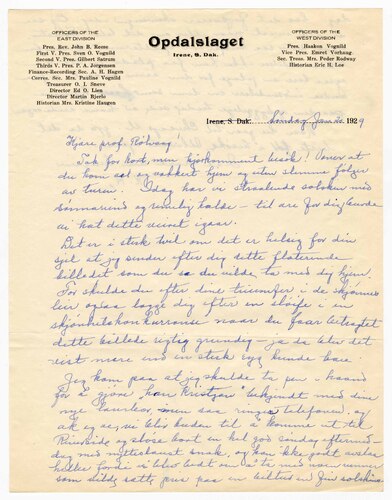 OFFICERS OF THE
EAST DIVISION
Pres. Rev. John B. Keese
First V. Pres. Sven O. Vognild
Second V. Pres. Gilbert Satrum
Thirds V. Pres. P. A. Jorgensen
Finance-Recording Sec. A. H. Hagen
Corres. Sec. Mrs. Pauline Vognild
Treasurer O. I. Sneve
Director Ed O. Lien
Director Martin Bjerle
Historian Mrs. Kristine Haugen
Opdalslaget
Irene, S. Dak.
OFFICERS OF THE
WEST DIVISION
Pres. Haakon Vognild
Vice Pres. Esmret Vorhang.
Sec. Treas. Mrs. Peder Rodway
Historian Eric H. Loe
Irene, S. Dak. Søndag Jan 20. 1929
Kjære prof. Rölvaag!
Tak for kort, men kjærkomment besök! Haaber at
du kom vel og vakkert hjem og uten slemme følger
av turen. Idag har vi straalende solskin med
sønnavind og rimelig halke – til are for dig burde
vi hat dette veiret igaar.
Det er i sterk tvil om det er helsig for din
sjel at jeg sender efter dig dette flaterende
billedet som du sa du vilde ta med dig hjem.
For skulde du efter dine triumfer i de skjønnes
leir ogsaa lægge dig efter en sløife i en
skjønhetskonkurranse naar du faar betragtet
dette billede rigtig grundig – ja da blev det
vist mere end en sterk ryg kunde bære.
Jeg kom paa at jeg skulde ta pen i haand
for å gjøre kjendt med dine
nye men saa ringte telefonen og
bud om å komme ut til
Riverside og en hel god søndag eftermid-
dag med snak, og kan ikke godt avslaa
heller fordi vi blev bedt om å ta med
som vilde sætte pris paa en biltur i fin solskins